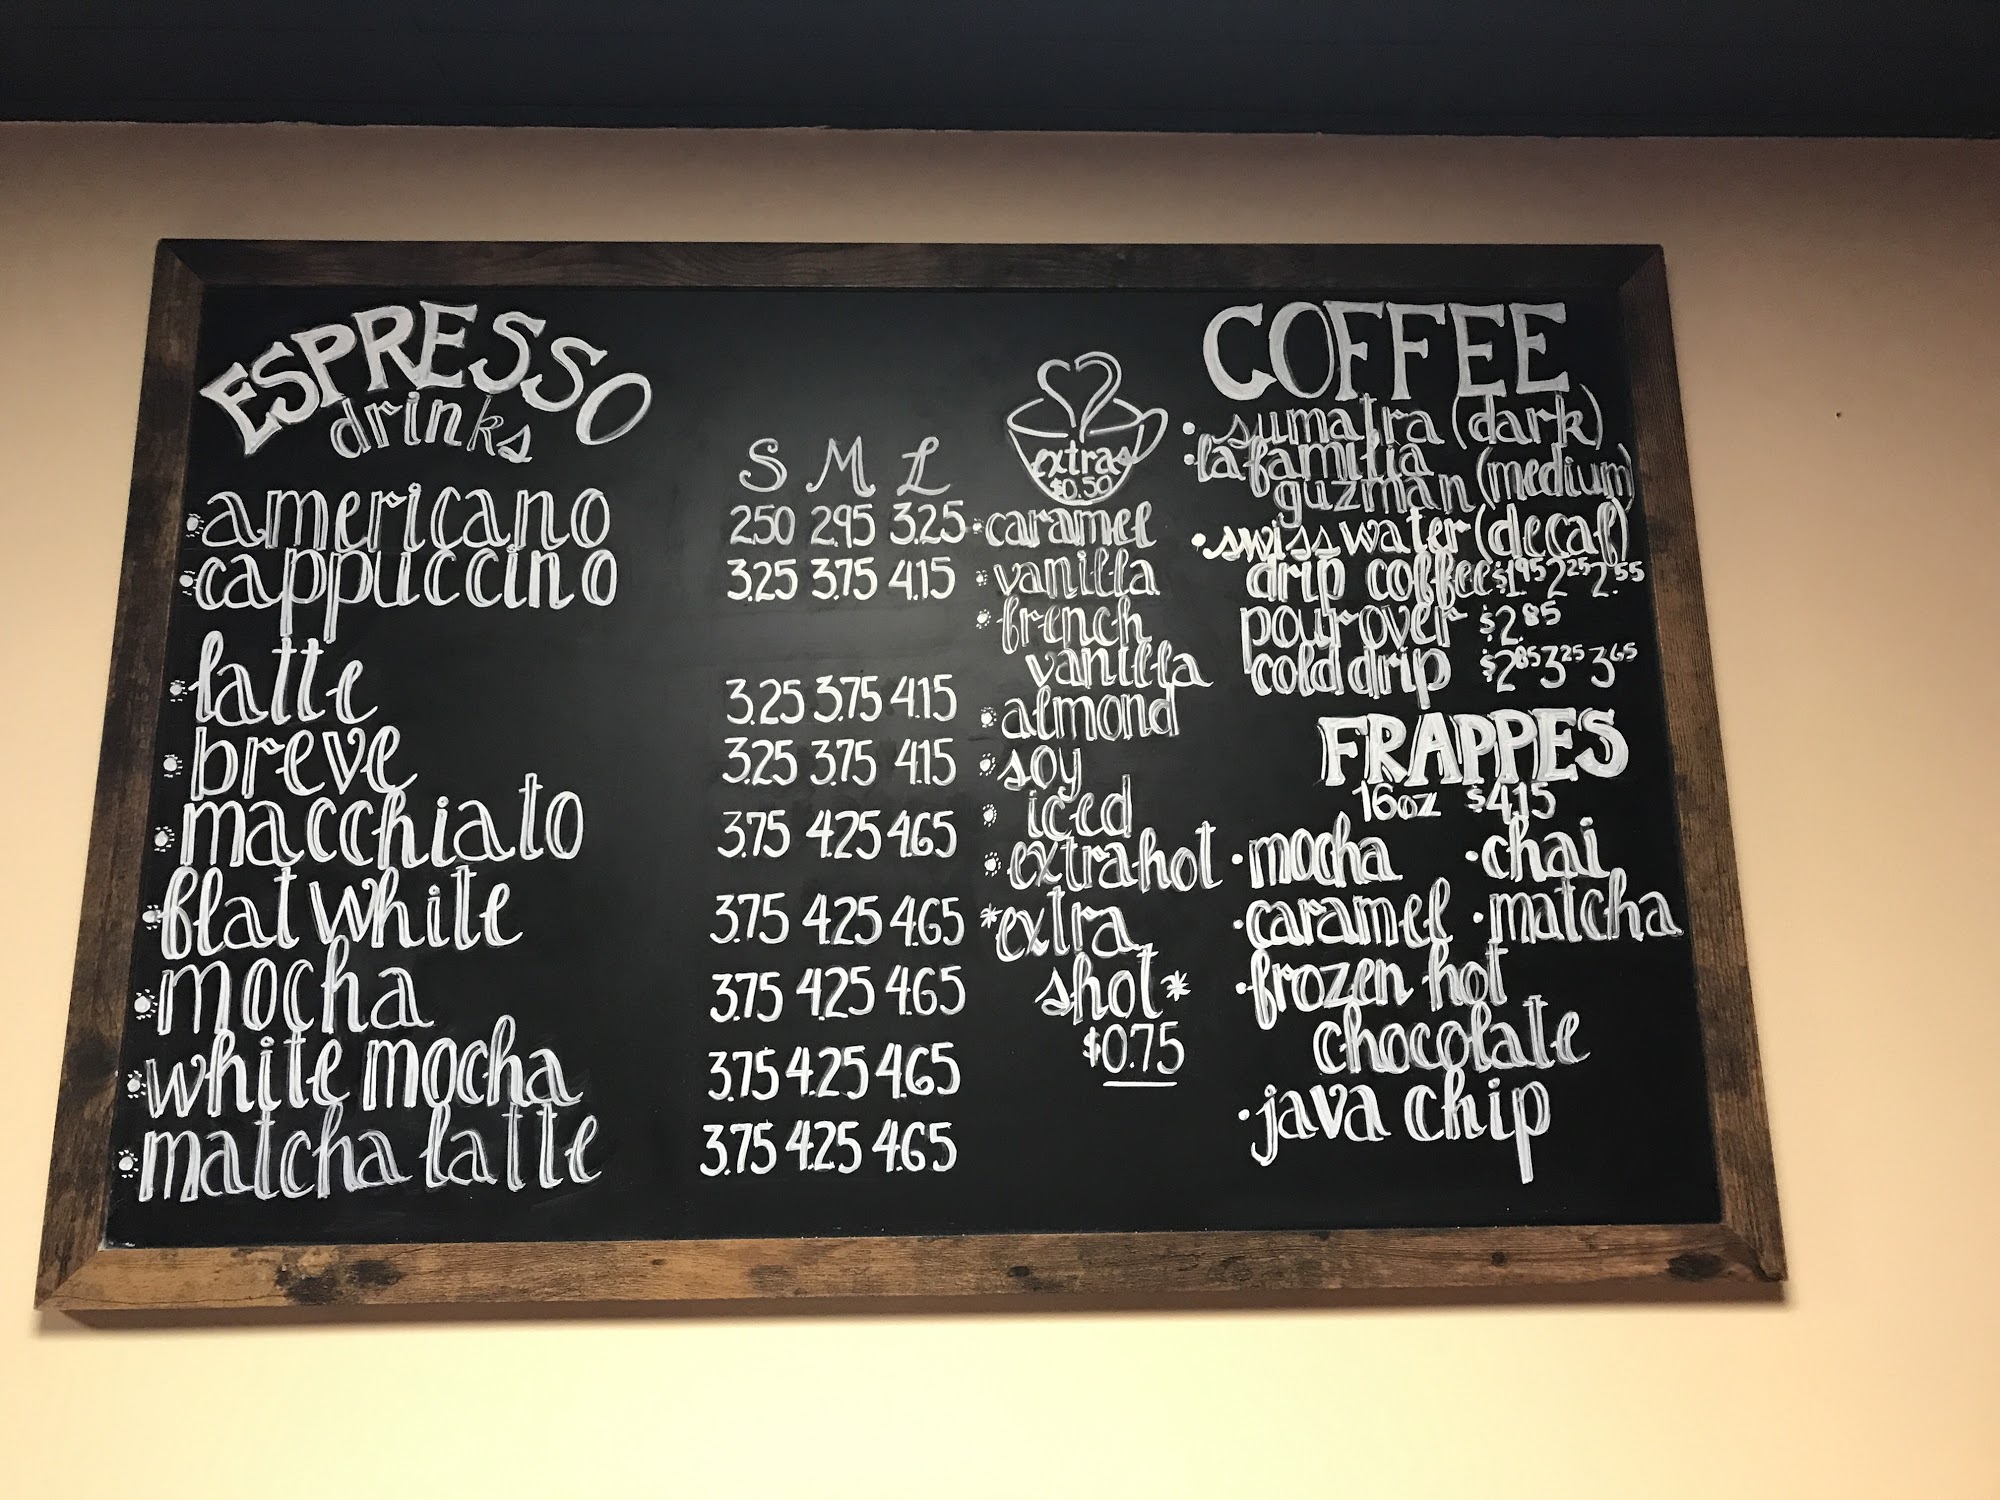 ESPRESSO
drinks
S M L
americano 2.50 2.95 3.25
cappuccino 3.25 3.75 4.15
latte 3.25 3.75 4.15
breve 3.25 3.75 4.15
macchiato 3.75 4.25 4.65
flat white 3.75 4.25 4.65
mocha 3.75 4.25 4.65
white mocha 3.75 4.25 4.65
matcha latte 3.75 4.25 4.65
extras
$0.50
caramel
vanilla
french
vanilla
almond
soy
iced
extra hot
*extra
shot*
$0.75
COFFEE
• sumatra (dark)
• la familia
guzman (medium)
• swiss water (decaf)
drip coffee $1.95 2.25 2.55
pour over $2.85
cold drip $2.85 3.25 3.65
FRAPPES
16oz $4.15
• mocha • chai
• caramel • matcha
• frozen hot
chocolate
• java chip